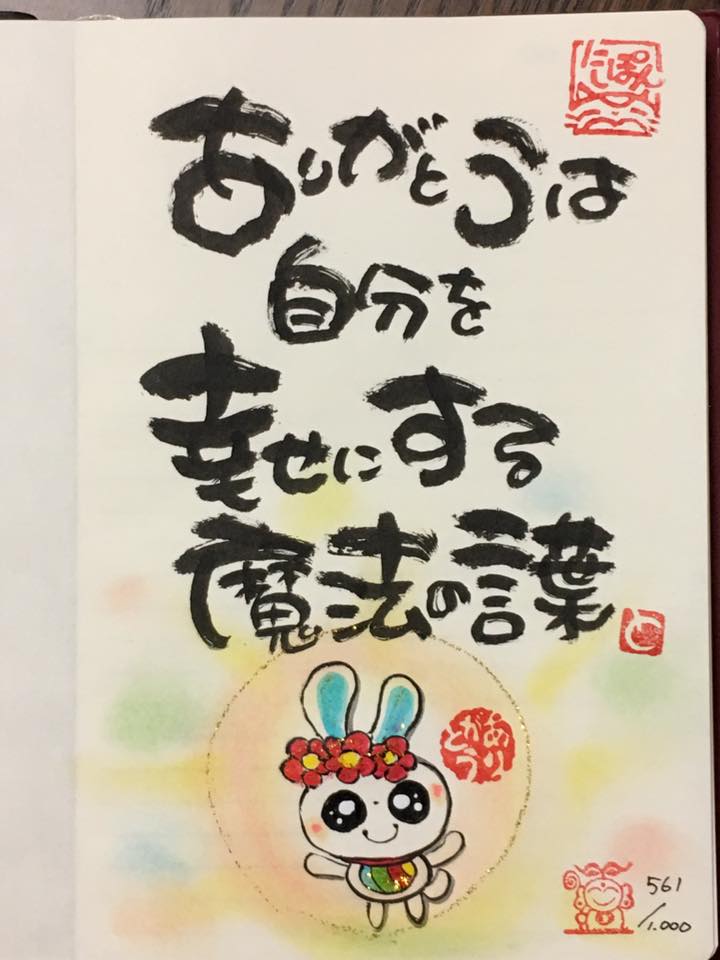 にしぽん
ありがとうは
自分を
幸せにする
魔法の言葉
と
ありがとう
561
/1.000